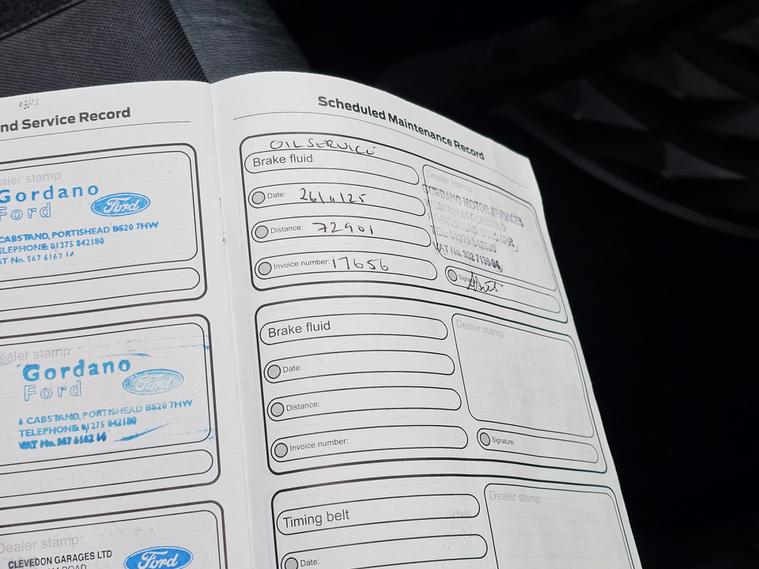 nd Service Record
ealer stamp
Gordano
Ford
Ford
CABSTAND, PORTISHEAD BS20 7HW
TELEPHONE: 01275 842180
AT No. 567 6162 14
ealer stamp
Gordano
Ford
Ford
6 CABSTAND, PORTISHEAD BS20 7HW
TELEPHONE 01275 842180
VAT No. 567 6162 14
Dealer stamp
CLEVEDON GARAGES LTD
Ford
ROAD
Scheduled Maintenance Record
OIL SERVICE
Brake fluid
Date: 26/11/25
Distance: 72901
Invoice number: 17656
Dealer stamp
GORDANO MOTOR SERVICES
VAT No.
Signature
Brake fluid
Date:
Distance:
Invoice number:
Dealer stamp
Signature:
Timing belt
Date:
Dealer stamp